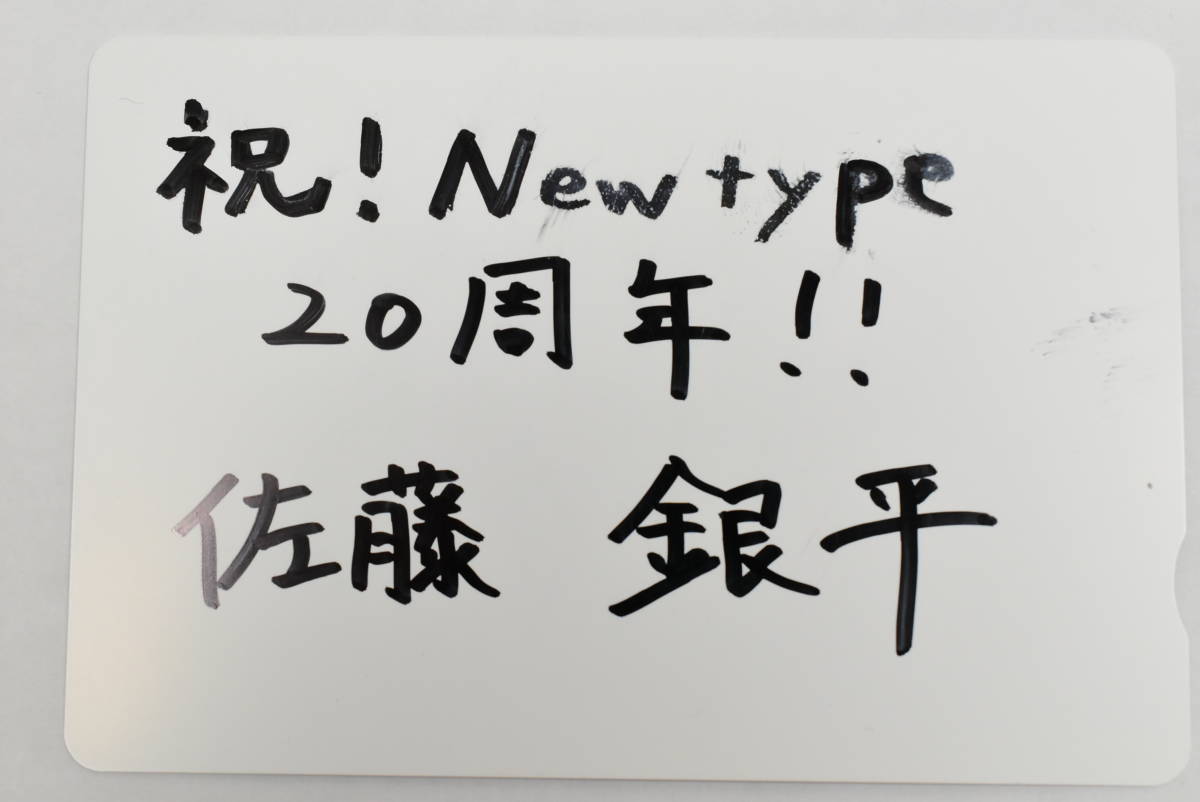 祝!Newtype
20周年!!
佐藤 銀平